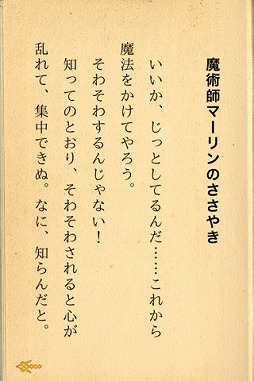 魔術師マーリンのささやき
いいか、じっとしてるんだ……これから
魔法をかけてやろう。
そわそわするんじゃない!
知ってのとおり、そわそわされると心が
乱れて、集中できぬ。なに、知らんだと。